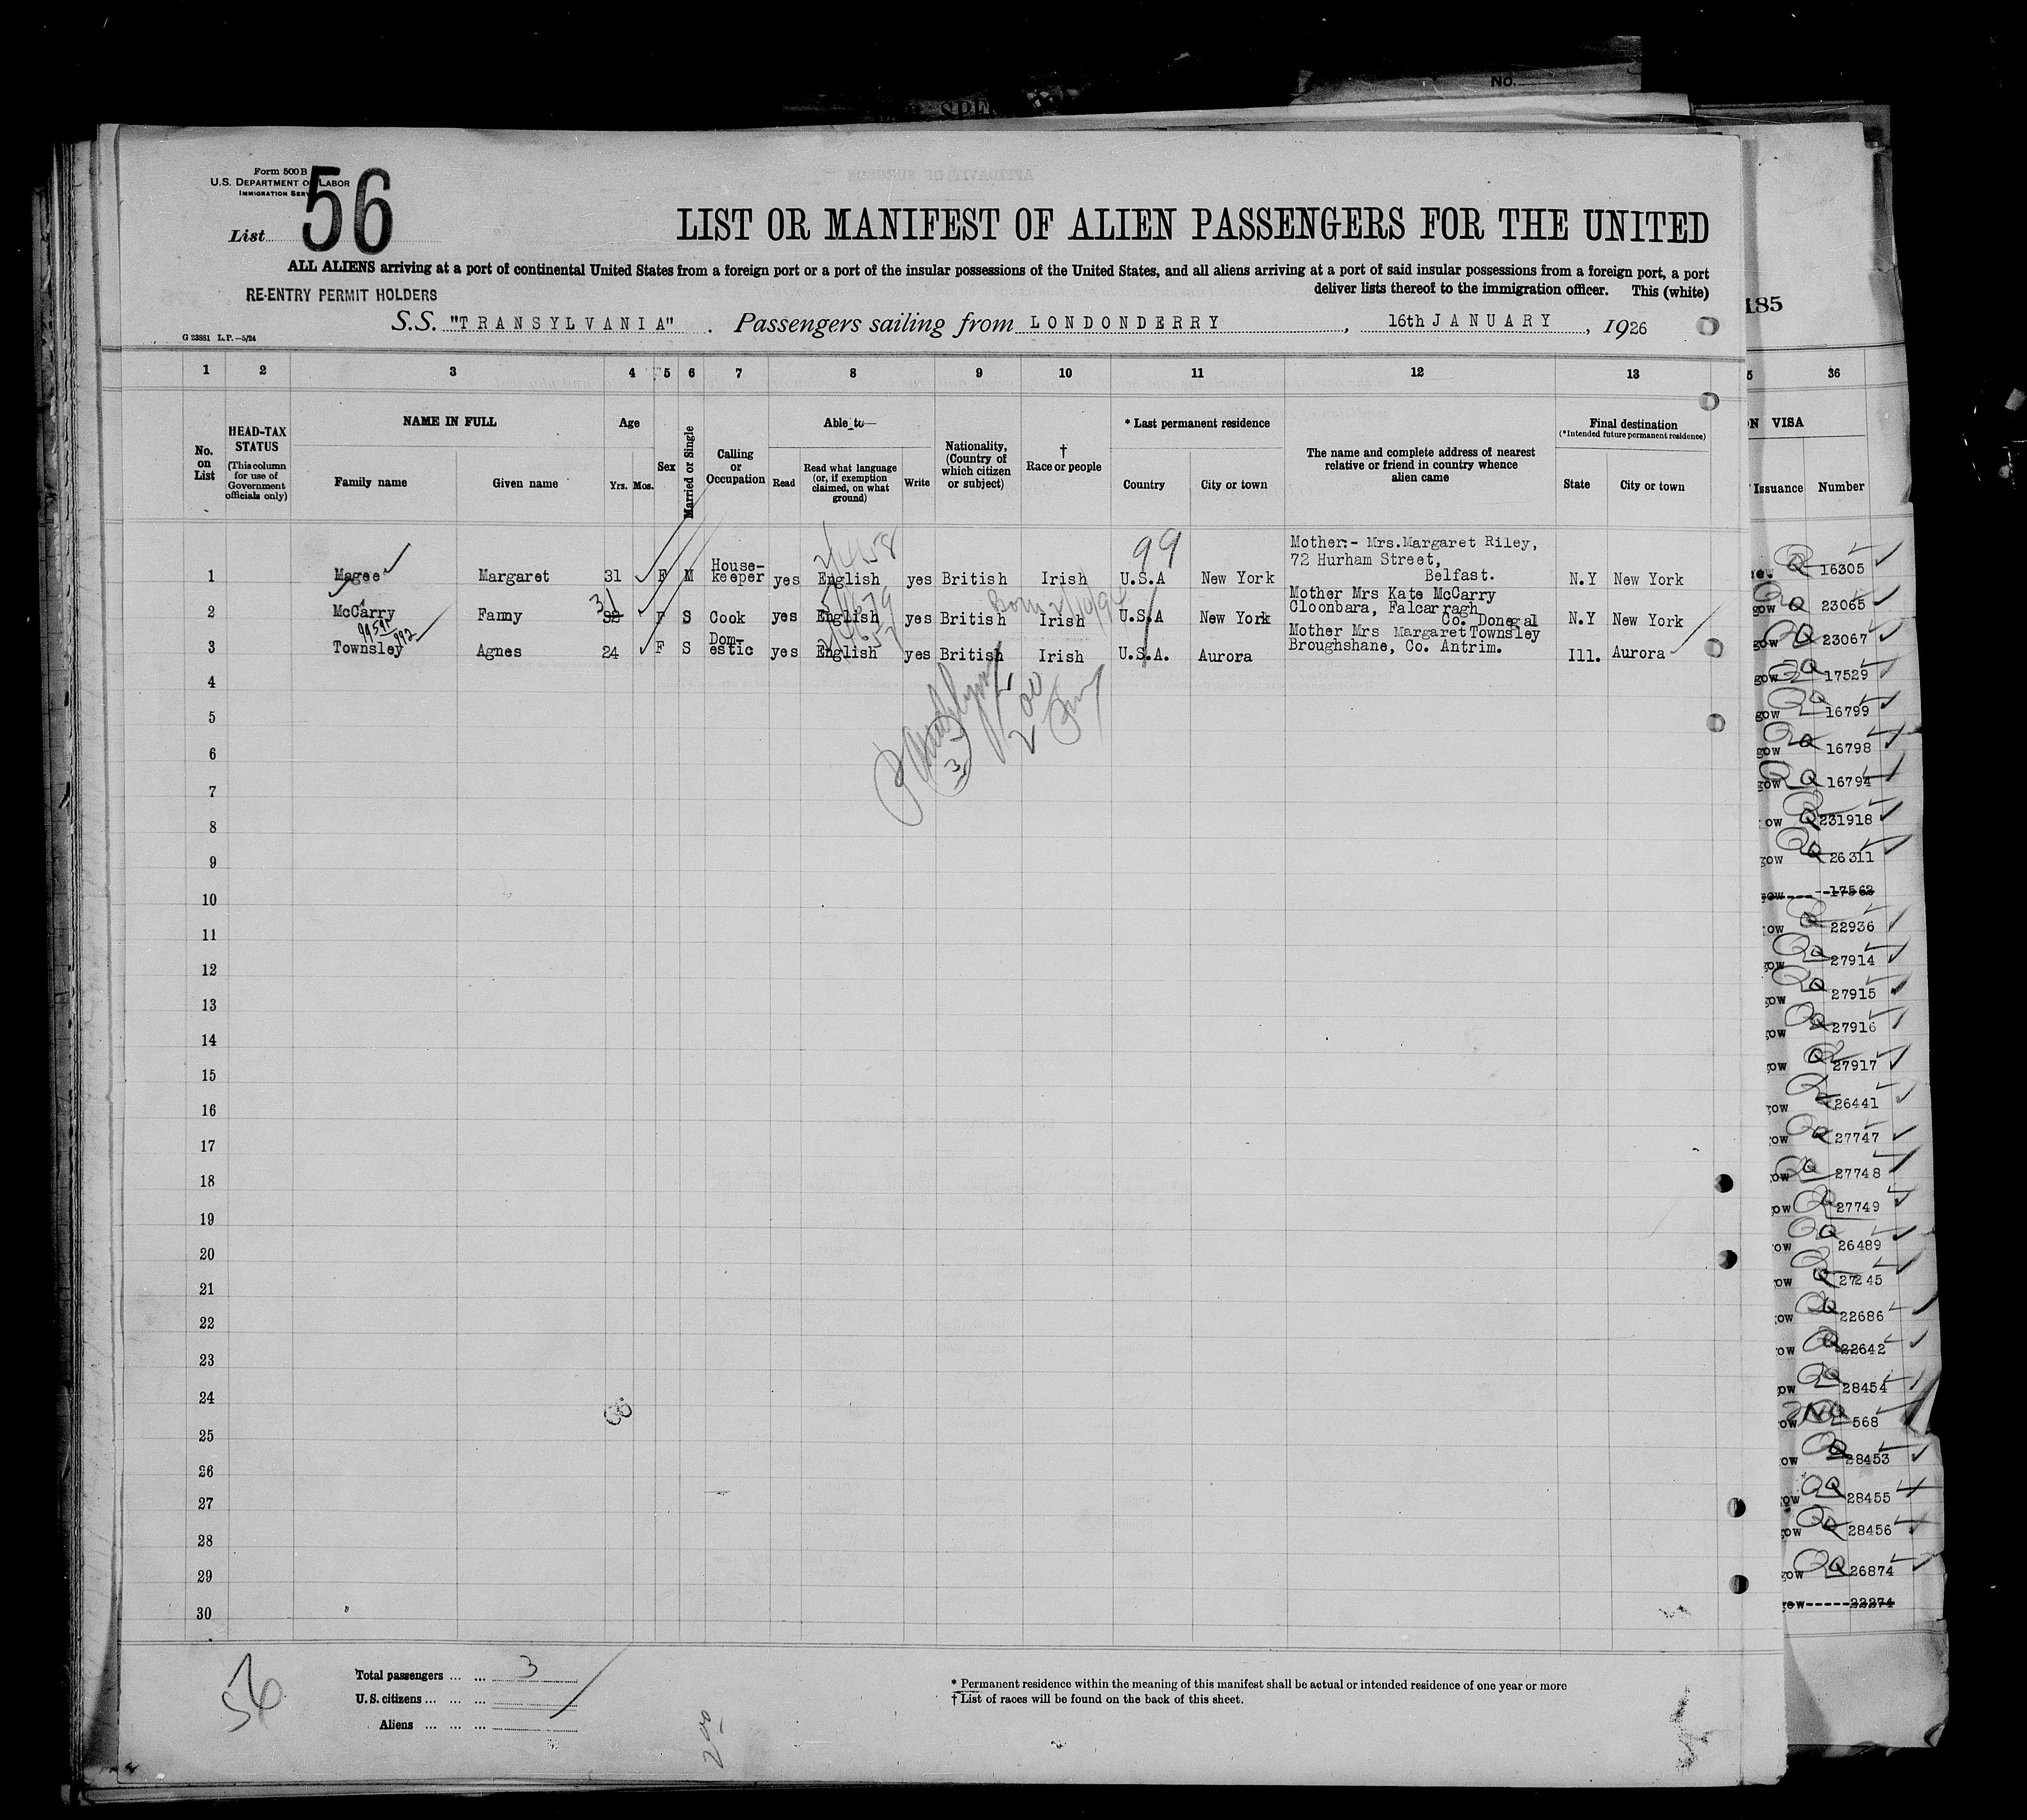 NO.
SPE
Form 500 B
U.S. DEPARTMENT OF LABOR
IMMIGRATION SERV
List 56
LIST OR MANIFEST OF ALIEN PASSENGERS FOR THE UNITED
ALL ALIENS arriving at a port of continental United States from a foreign port or a port of the insular possessions of the United States, and all aliens arriving at a port of said insular possessions from a foreign port, a port
deliver lists thereof to the immigration officer. This (white)
RE-ENTRY PERMIT HOLDERS
S.S. "TRANSYLVANIA". Passengers sailing from LONDONDERRY, 16th JANUARY, 1926
G 23881 L.P.—5/24
185
1 2 3 4 5 6 7 8 9 10 11 12 13 36
No. on List
HEAD-TAX STATUS
(This column for use of Government officials only)
NAME IN FULL
Family name Given name
Age
Yrs. Mos.
Sex
Married or Single
Calling or Occupation
Able to—
Read
Read what language (or, if exemption claimed, on what ground)
Write
Nationality, (Country of which citizen or subject)
† Race or people
* Last permanent residence
Country City or town
The name and complete address of nearest relative or friend in country whence alien came
Final destination
(*Intended future permanent residence)
State City or town
VISA
Issuance Number
1 Magee Margaret 31 F M House-keeper yes English yes British Irish U.S.A New York Mother:- Mrs. Margaret Riley, 72 Hurham Street, Belfast. N.Y New York
99
2 McCarry Fanny 32 31 F S Cook yes English yes British Irish U.S.A New York Mother Mrs Kate McCarry Cloonbara, Falcarragh Co. Donegal N.Y New York
Born
3 Townsley Agnes 24 F S Dom-estic yes English yes British Irish U.S.A. Aurora Mother Mrs Margaret Townsley Broughshane, Co. Antrim. Ill. Aurora
3
200
4
5
6
7
8
9
10
11
12
13
14
15
16
17
18
19
20
21
22
23
24
25
26
27
28
29
30
16305
gow 23065
gow 23067
gow 17529
gow 16799
gow 16798
gow 16794
ow 231918
gow 26311
gow 17562
ow 22936
gow 27914
gow 27915
gow 27916
gow 27917
gow 26441
ow 27747
ow 27748
ow 27749
ow 26489
ow 27245
ow 22686
ow 22642
gow 28454
ow 568
ow 28453
gow 28455
gow 28456
gow 26874
gow 22274
56
Total passengers ... ... 3
U.S. citizens ... ... ...
Aliens ... ... ...
200
* Permanent residence within the meaning of this manifest shall be actual or intended residence of one year or more
† List of races will be found on the back of this sheet.